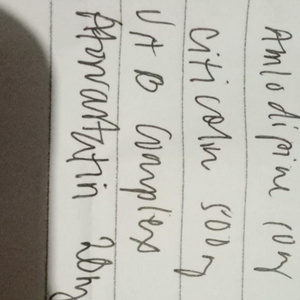 Amlodipine 10mg
Citicolin 500mg
Vit B Complex
Atorvastatin 20mg